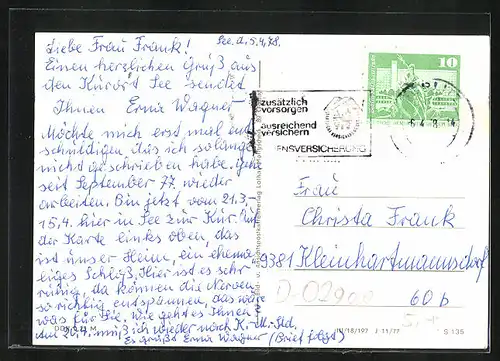 See. d. 5.4.78.
Liebe Frau Frank!
Einen herzlichen Gruß aus
den Kurort See sendet
Ihnen Erna Wagner
Möchte mich erst mal ent-
schuldigen das ich solange
nicht geschrieben habe. Gehe
seit September 77 wieder
arbeiten. Bin jetzt vom 21.3.-
15.4. hier in See zur Kur. Auf
der Karte links oben, das
ist unser Heim, ein ehema-
liges Schloß. Hier ist es sehr
ruhig, da können die Nerven
so richtig entspannen, das wäre
was für Sie. Wie geht es Ihnen
am 20.4. muß ich wieder nach K.-M.-Std.
Es grüßt Erna Wagner (Brief folgt)
10
zusätzlich
vorsorgen
ausreichend
versichern
ENSVERSICHERUNG
Frau
Christa Frank
9381 Kleinhartmannsdorf
60 b
D-02900
III/18/197 J 11/77
S 135